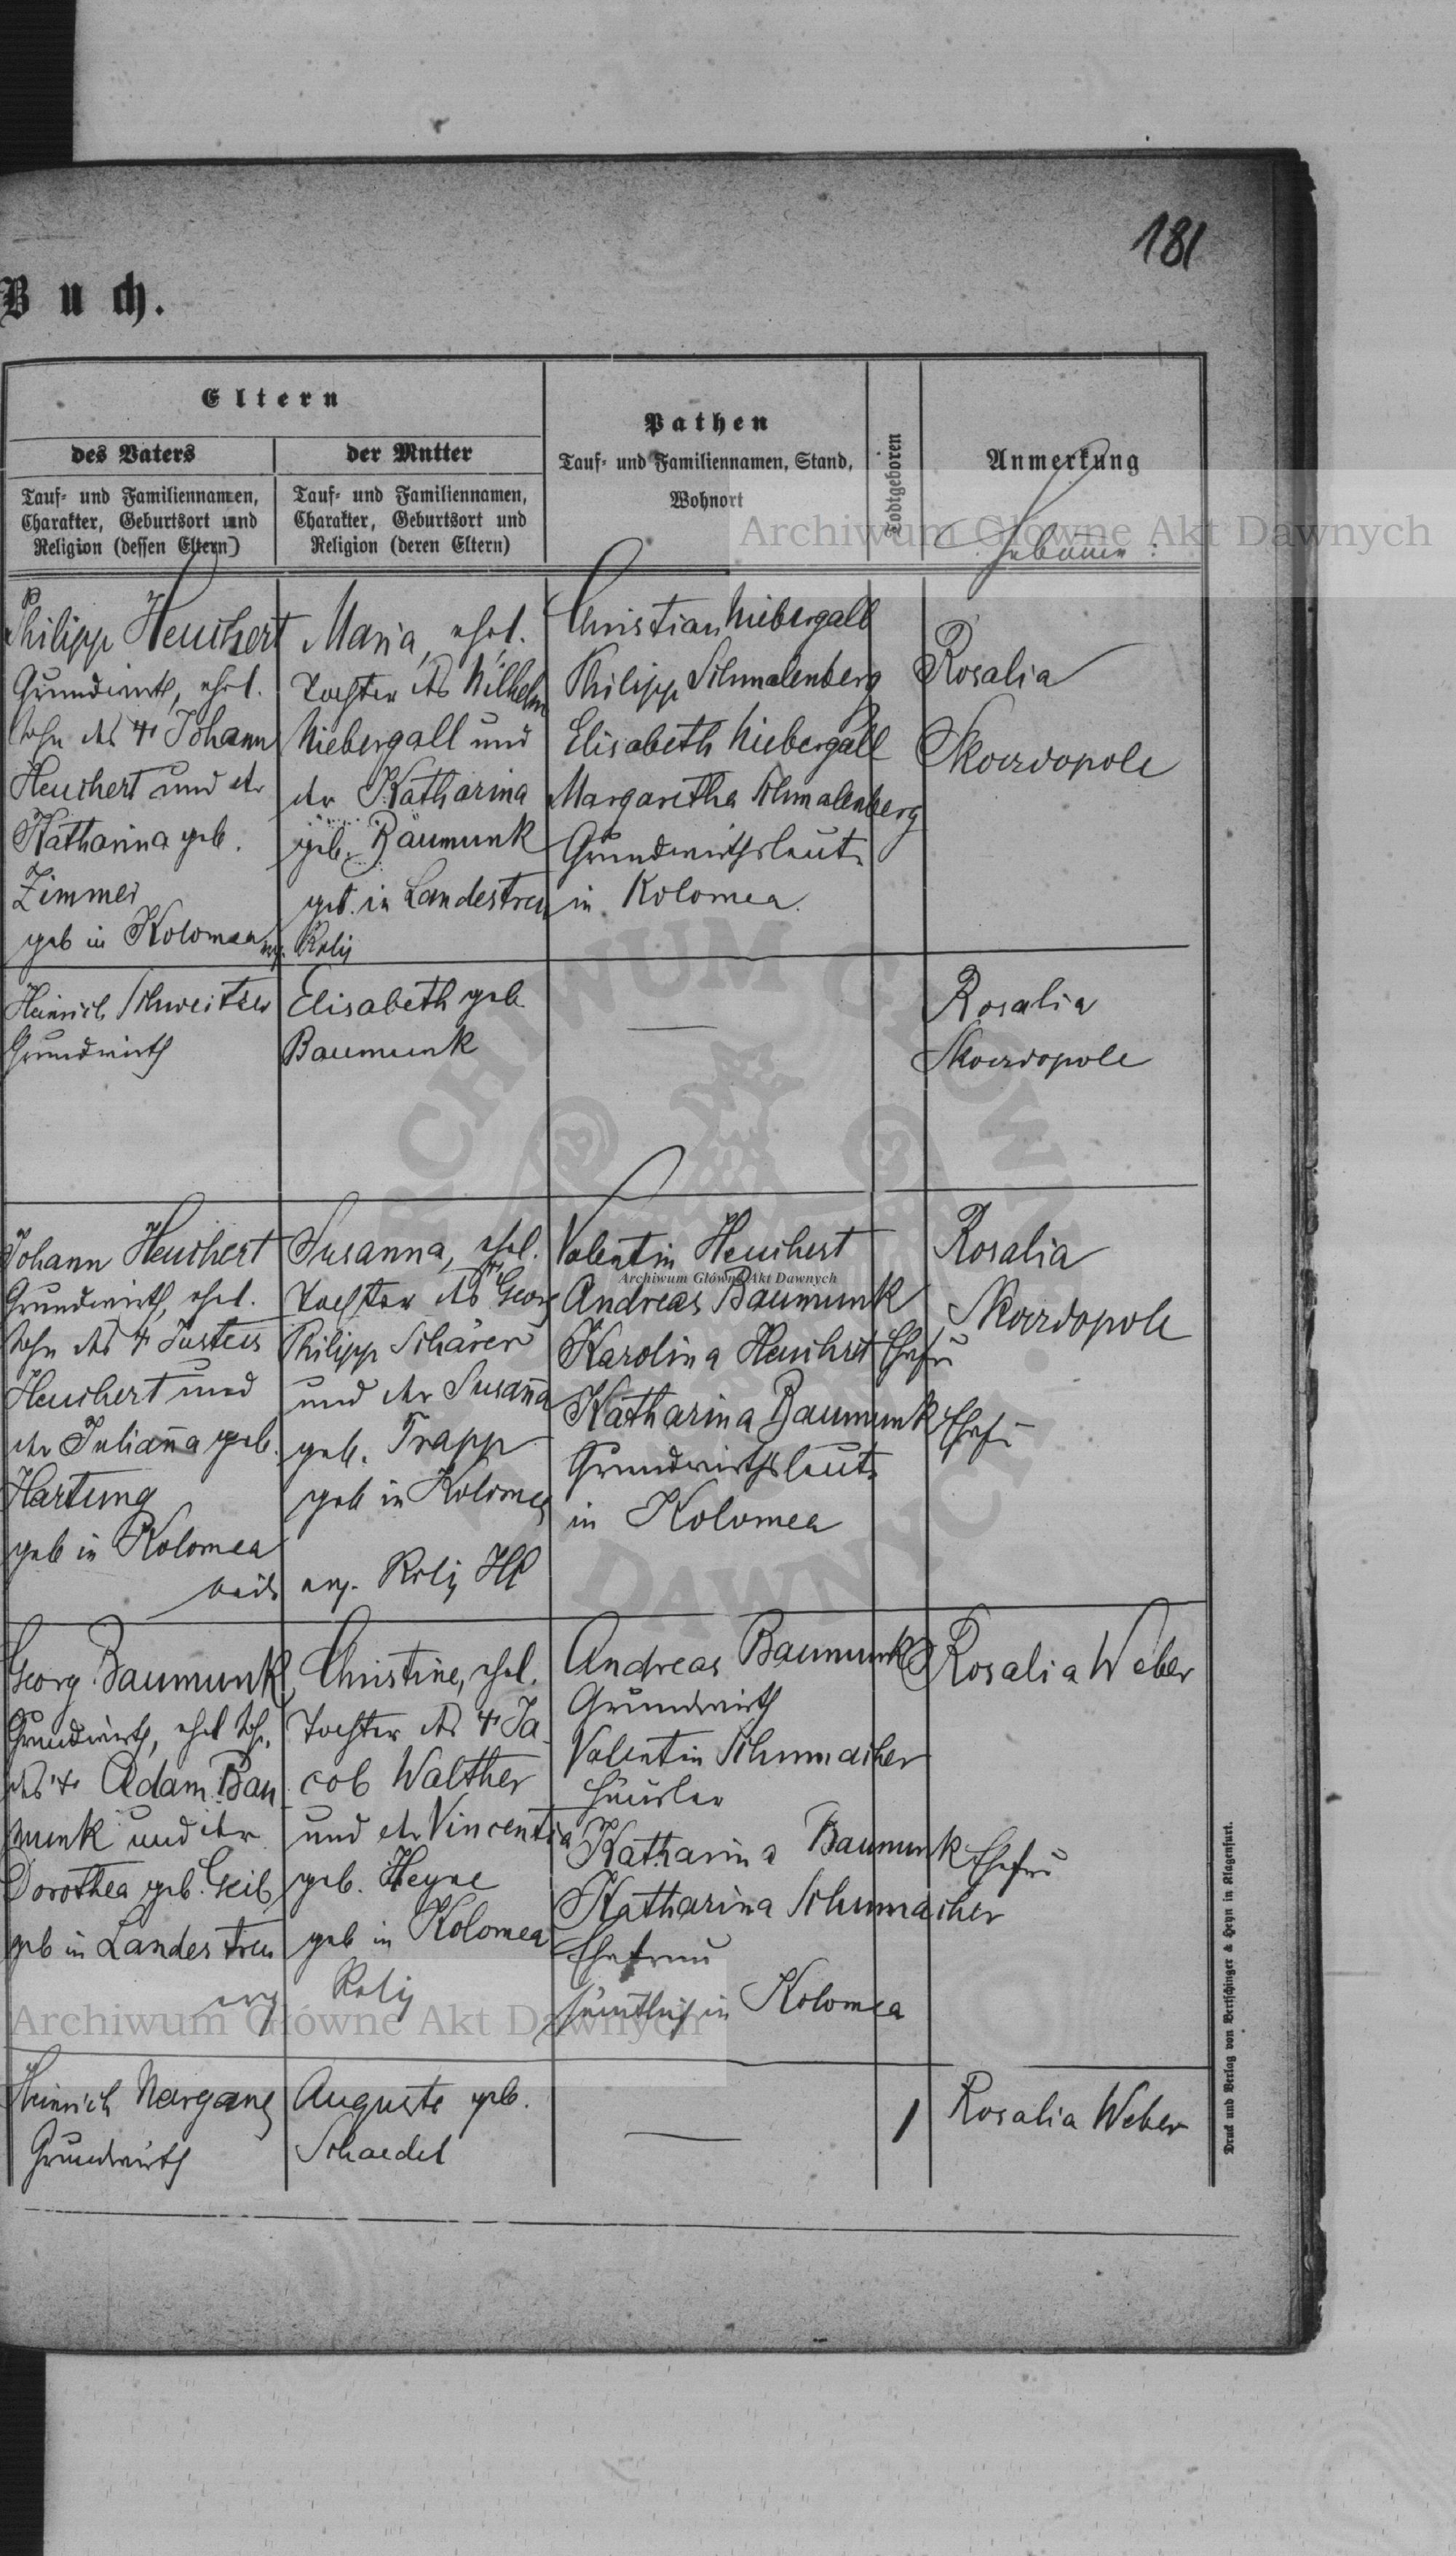 181
Buch.
Eltern
des Vaters
Tauf- und Familiennamen,
Charakter, Geburtsort und
Religion (dessen Eltern)
der Mutter
Tauf- und Familiennamen,
Charakter, Geburtsort und
Religion (deren Eltern)
Pathen
Tauf- und Familiennamen, Stand,
Wohnort
Todtgeboren
Anmerkung
Hebamme:
Philipp Heuchert
Grundwirth, ehel.
Sohn des † Johann
Heuchert und der
Katharina geb.
Zimmer
geb in Kolomea
Maria, ehel.
Tochter des Wilhelm
Niebergall und
der Katharina
geb. Baumunk
geb. in Landestreu
ev. Relig
Christian Niebergall
Philipp Schmalenberg
Elisabeth Niebergall
Margaretha Schmalenberg
Grundwirthsleute
in Kolomea.
Rosalia
Skowdopole
Heinrich Schweitzer
Grundwirth
Elisabeth geb
Baumunk
—
Rosalia
Skowdopole
Johann Heuchert
Grundwirth, ehel.
Sohn des † Justus
Heuchert und
der Juliana geb.
Hartung
geb in Kolomea
beide
Susanna, ehel.
Tochter des † Georg
Philipp Schärer
und der Susana
geb. Trapp
geb in Kolomea
ev. Relig HC
Valentin Heuchert
Andreas Baumunk
Karolina Heuchert Ehefr
Katharina Baumunk Ehefr
Grundwirthsleute
in Kolomea
Rosalia
Skowdopole
Georg Baumunk
Grundwirth, ehel Sohn
des † Adam Bau
munk und der
Dorothea geb. Geib
geb in Landestreu
Christine, ehel.
Tochter des † Ja
cob Walther
und der Vincentia
geb. Heyne
geb in Kolomea
evg Relig
Andreas Baumunk
Grundwirth
Valentin Schumacher
Häusler
Katharina Baumunk Ehefrau
Katharina Schumacher
Ehefrau
sämtlich in Kolomea
Rosalia Weber
Heinrich Nargang
Grundwirth
Auguste geb.
Schaedel
—
1
Rosalia Weber
Druck und Verlag von Bertschinger & Heyn in Klagenfurt.
Archiwum Główne Akt Dawnych
Archiwum Główne Akt Dawnych
Archiwum Główne Akt Dawnych